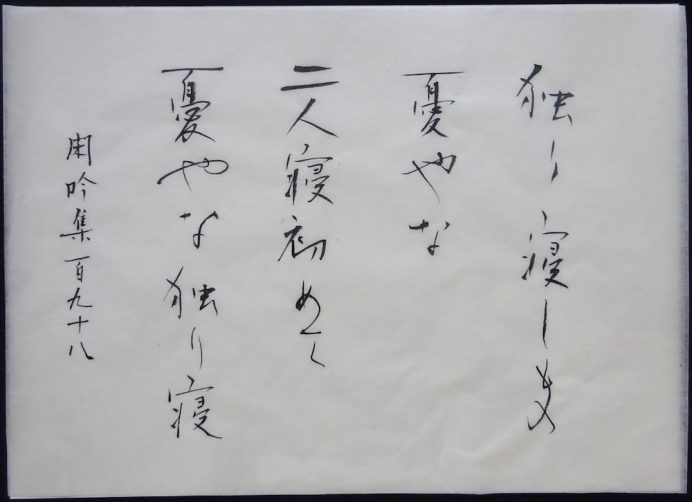 独り寝しもの
憂やな
二人寝初めて
憂やな独り寝
閑吟集百九十八